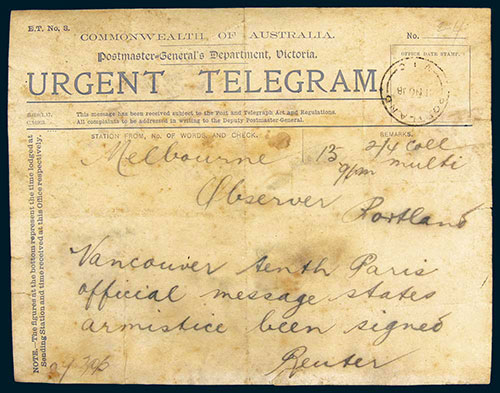 E.T. No. 8.
COMMONWEALTH OF AUSTRALIA.
No.
Postmaster-General's Department, Victoria.
OFFICE DATE STAMP.
URGENT TELEGRAM
PORTLAND
VIC
This message has been received subject to the Post and Telegraph Act and Regulations.
All complaints to be addressed in writing to the Deputy Postmaster-General.
STATION FROM, No. OF WORDS, AND CHECK.
REMARKS.
Melbourne 13 2/4 coll
9pm multi
Observer
Portland
Vancouver tenth Paris
official message states
armistice been signed
Reuter
NOTE.—The figures at the bottom represent the time lodged at
Sending Station and time received at this Office respectively.